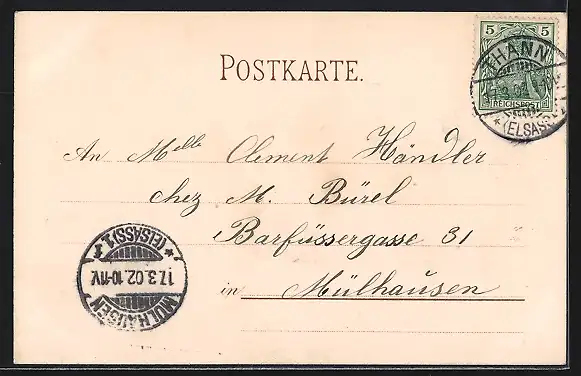 POSTKARTE.
5 5
REICHSPOST
THANN
17.3.02
* (ELSASS)
An Melle Clement Händler
chez M. Bürel
Barfüssergasse 31
in Mülhausen
MÜLHAUSEN
17.3.02.10-11V.
* (ELSASS).1. *